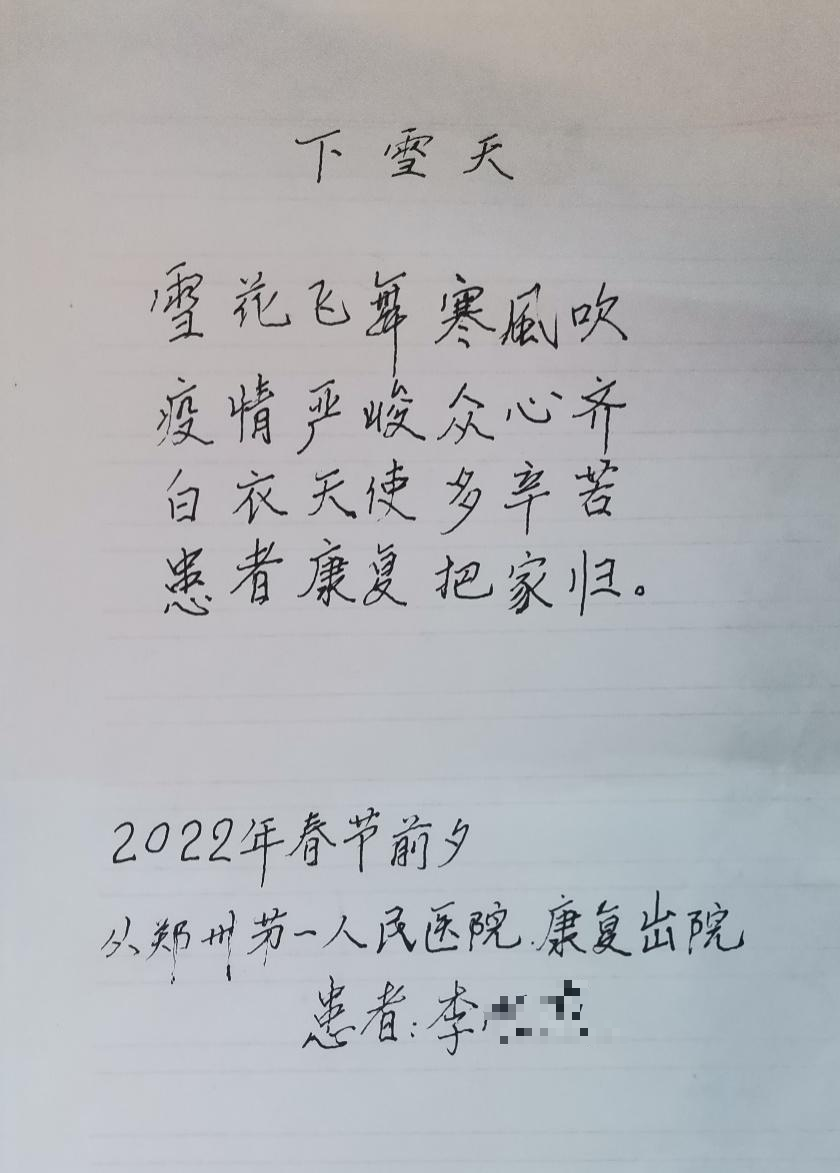 下雪天
雪花飞舞寒風吹
疫情严峻众心齐
白衣天使多辛苦
患者康复把家归。
2022年春节前夕
从郑州第一人民医院.康复出院
患者:李